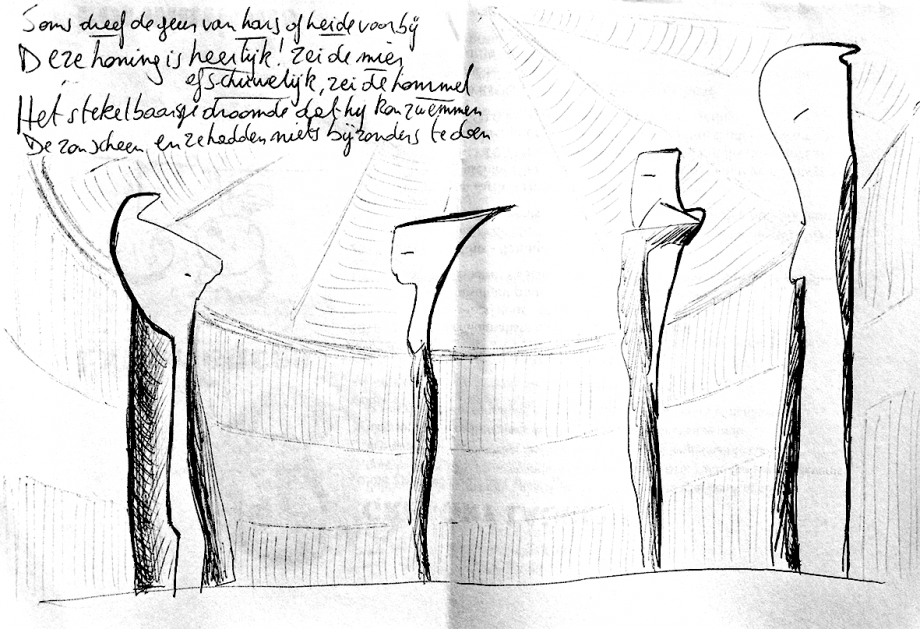 Soms dreef de geur van hars of heide voorbij
Deze honing is heerlijk! zei de mier
afschuwelijk, zei de hommel
Het stekelbaarsje droomde dat hij kon zwemmen
De zon scheen en ze hadden niets bijzonders te doen